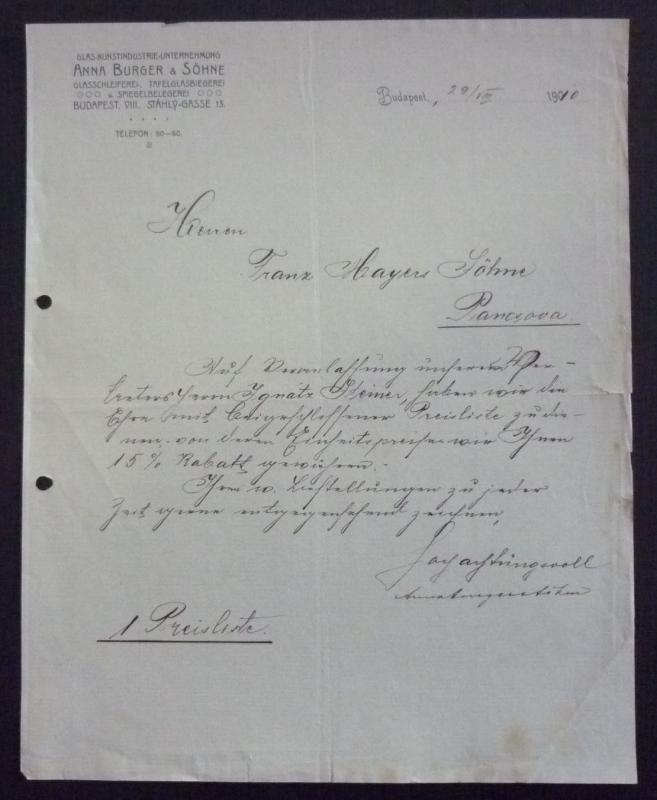 GLAS-KUNSTINDUSTRIE-UNTERNEHMUNG
ANNA BURGER & SÖHNE
GLASSCHLEIFEREI, TAFELGLASBIEGEREI
u. SPIEGELBELEGEREI
BUDAPEST, VIII. STÁHLY-GASSE 13.
TELEFON: 50—60.
Budapest, 29/III 1910
Herren
Franz Mayers Söhne
Pancsova.
Auf Veranlassung unseres Ver-
treters Herrn Ignátz Steiner, haben wir die
Ehre mit beigeschlossener Preisliste zu die-
nen, von deren Einheitspreisen wir Ihnen
15% Rabatt gewähren.-
Ihren w. Bestellungen zu jeder
Zeit gerne entgegensehend zeichnen,
Hochachtungsvoll
1 Preisliste.